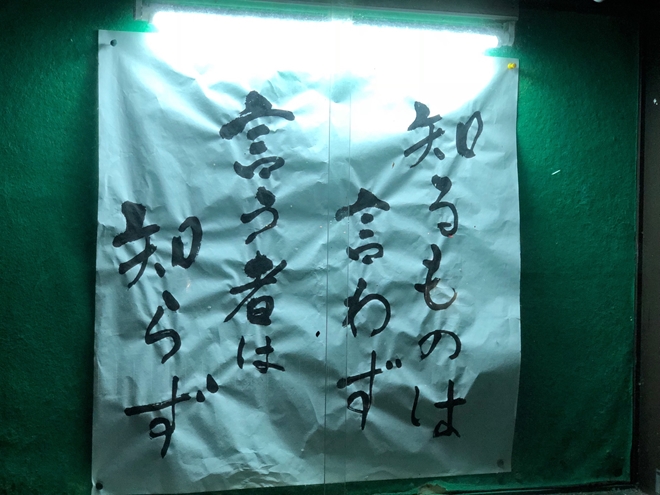 知るものは
言わず
言う者は
知らず